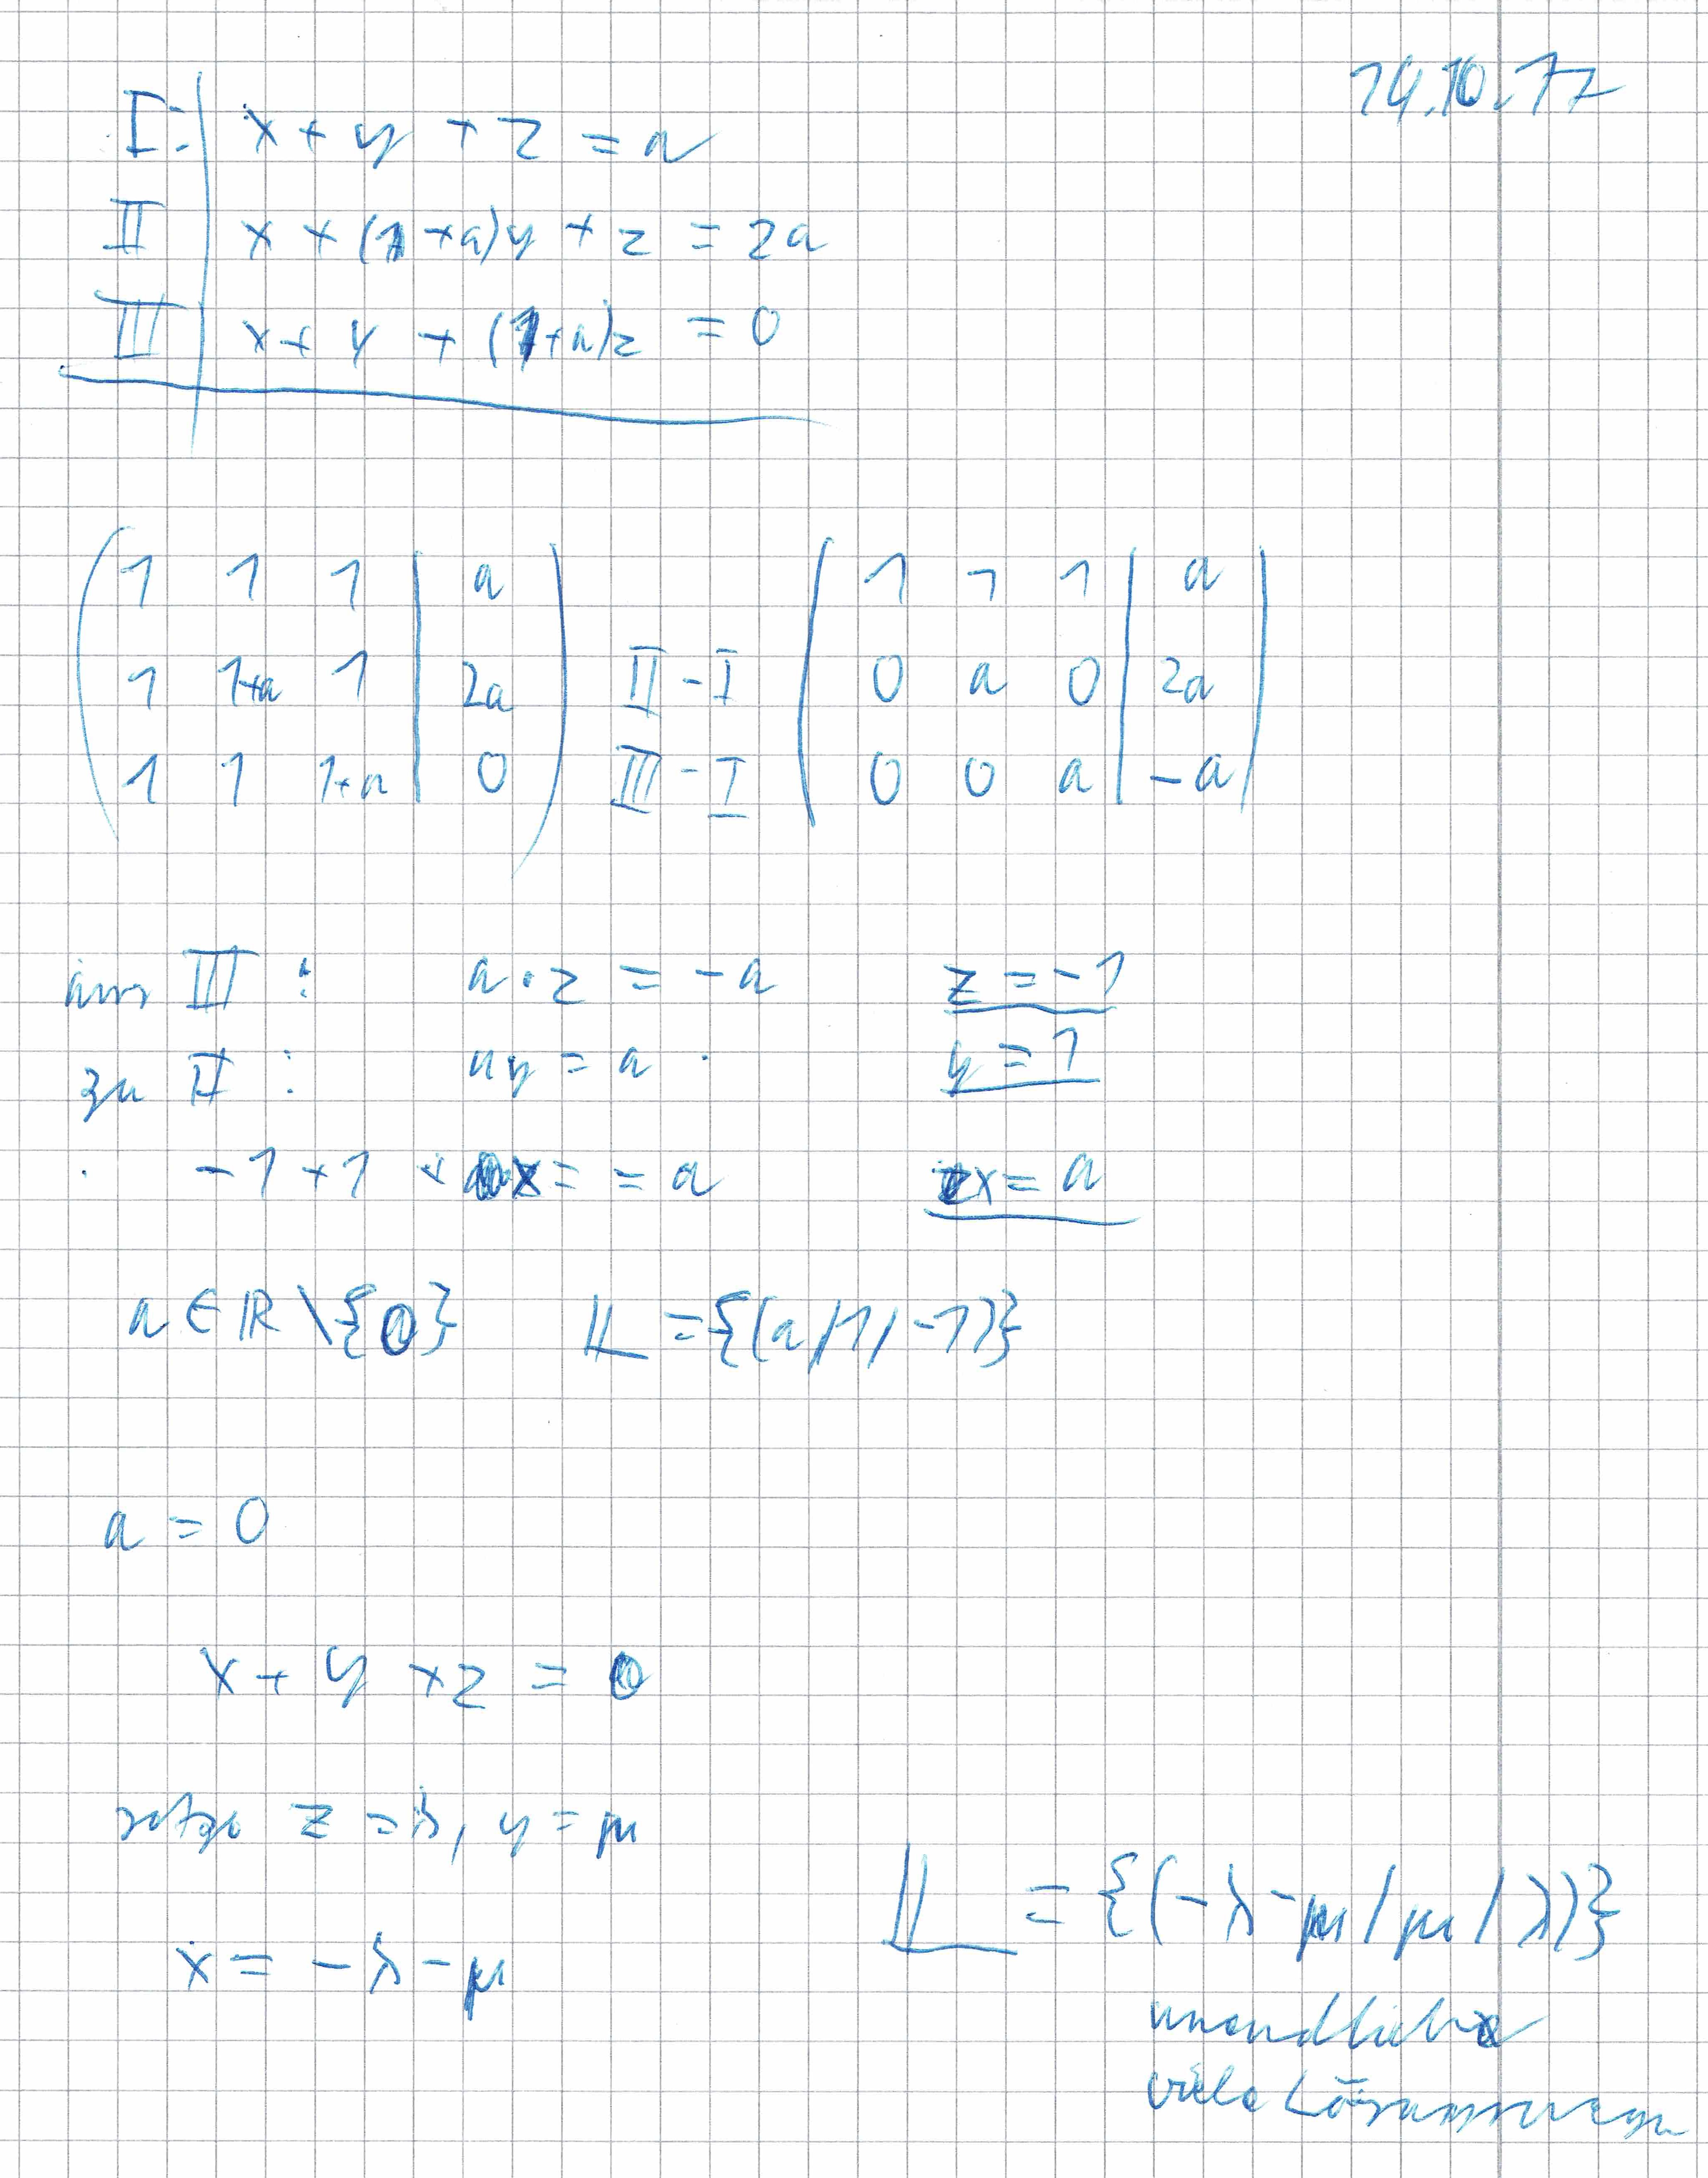 24.10.17
I: x + y + z = a
II x + (1+a)y + z = 2a
III x + y + (1+a)z = 0
( 1 1 1 | a ) ( 1 1 1 | a )
( 1 1+a 1 | 2a ) II - I ( 0 a 0 | 2a )
( 1 1 1+a | 0 ) III - I ( 0 0 a | -a )
aus III : a·z = -a z = -1
zu II : ay = a y = 1
-1 + 1 + x = = a x = a
a ∈ ℝ \ {0} 𝕃 = {(a/1/-1)}
a = 0
x + y + z = 0
setze z = λ, y = μ
𝕃 = {(-λ-μ/μ/λ)}
x = -λ-μ
unendlich
viele Lösungen